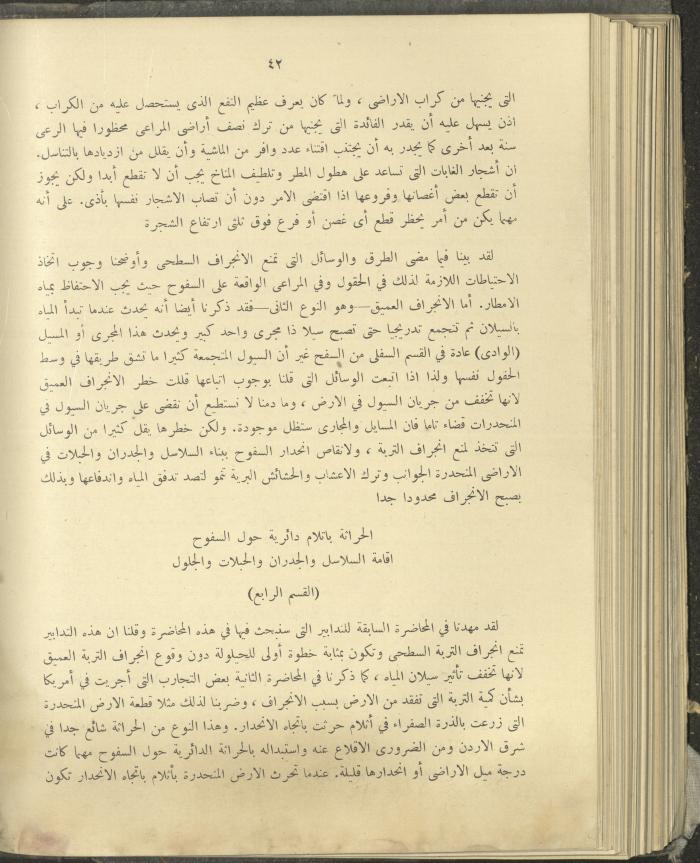 ٤٢
التى يجنيها من كراب الاراضى ، ولما كان يعرف عظيم النفع الذى يستحصل عليه من الكراب ،
اذن يسهل عليه أن يقدر الفائدة التى يجنيها من ترك نصف أراضى المراعى محظورا فيها الرعى
سنة بعد أخرى كما يجدر به أن يجتنب اقتناء عدد وافر من الماشية وأن يقلل من ازديادها بالتناسل.
ان أشجار الغابات التى تساعد على هطول المطر وتلطيف المناخ يجب أن لا تقطع أبدا ولكن يجوز
أن تقطع بعض أغصانها وفروعها اذا اقتضى الامر دون أن تصاب الاشجار نفسها بأذى. على أنه
مهما يكن من أمر يحظر قطع أى غصن أو فرع فوق ثلثى ارتفاع الشجرة
لقد بينا فيما مضى الطرق والوسائل التى تمنع الانجراف السطحى وأوضحنا وجوب اتخاذ
الاحتياطات اللازمة لذلك فى الحقول وفى المراعى الواقعة على السفوح حيث يجب الاحتفاظ بمياه
الامطار. أما الانجراف العميق—وهو النوع الثانى—فقد ذكرنا أيضا أنه يحدث عندما تبدأ المياه
بالسيلان ثم تتجمع تدريجيا حتى تصبح سيلا ذا مجرى واحد كبير ويحدث هذا المجرى أو المسيل
(الوادى) عادة فى القسم السفلى من السفح غير أن السيول المتجمعة كثيرا ما تشق طريقها فى وسط
الحقول نفسها ولذا اذا اتبعت الوسائل التى قلنا بوجوب اتباعها قللت خطر الانجراف العميق
لانها تخفف من جريان السيول فى الارض ، وما دمنا لا نستطيع أن نقضى على جريان السيول فى
المنحدرات قضاء تاما فان المسايل والمجارى ستظل موجودة. ولكن خطرها يقل كثيرا من الوسائل
التى تتخذ لمنع انجراف التربة ، ولانقاص انحدار السفوح ببناء السلاسل والجدران والحبلات فى
الاراضى المنحدرة الجوانب وترك الاعشاب والحشائش البرية تنمو لتصد تدفق المياه واندفاعها وبذلك
يصبح الانجراف محدودا جدا
الحراثة باتلام دائرية حول السفوح
اقامة السلاسل والجدران والحبلات والجلول
(القسم الرابع)
لقد مهدنا فى المحاضرة السابقة للتدابير التى سنبحث فيها فى هذه المحاضرة وقلنا ان هذه التدابير
تمنع انجراف التربة السطحى وتكون بمثابة خطوة أولى للحيلولة دون وقوع انجراف التربة العميق
لانها تخفف تأثير سيلان المياه ، كما ذكرنا فى المحاضرة الثانية بعض التجارب التى أجريت فى أمريكا
بشأن كمية التربة التى تفقد من الارض بسبب الانجراف ، وضربنا لذلك مثلا قطعة الارض المنحدرة
التى زرعت بالذرة الصفراء فى أثلام حرثت باتجاه الانحدار. وهذا النوع من الحراثة شائع جدا فى
شرق الاردن ومن الضرورى الاقلاع عنه واستبداله بالحراثة الدائرية حول السفوح مهما كانت
درجة ميل الاراضى أو انحدارها قليلة. عندما تحرث الارض المنحدرة بأثلام باتجاه الانحدار تكون